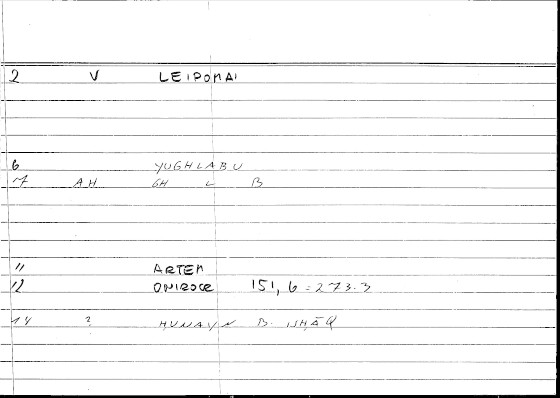 2 V LEIPOMAI
6 YUGHLABU
7 AH GH L B
11 ARTEM
12 ONIROCR 151, 6 = 273.3
14 ? HUNAYN B. ISHĀQ